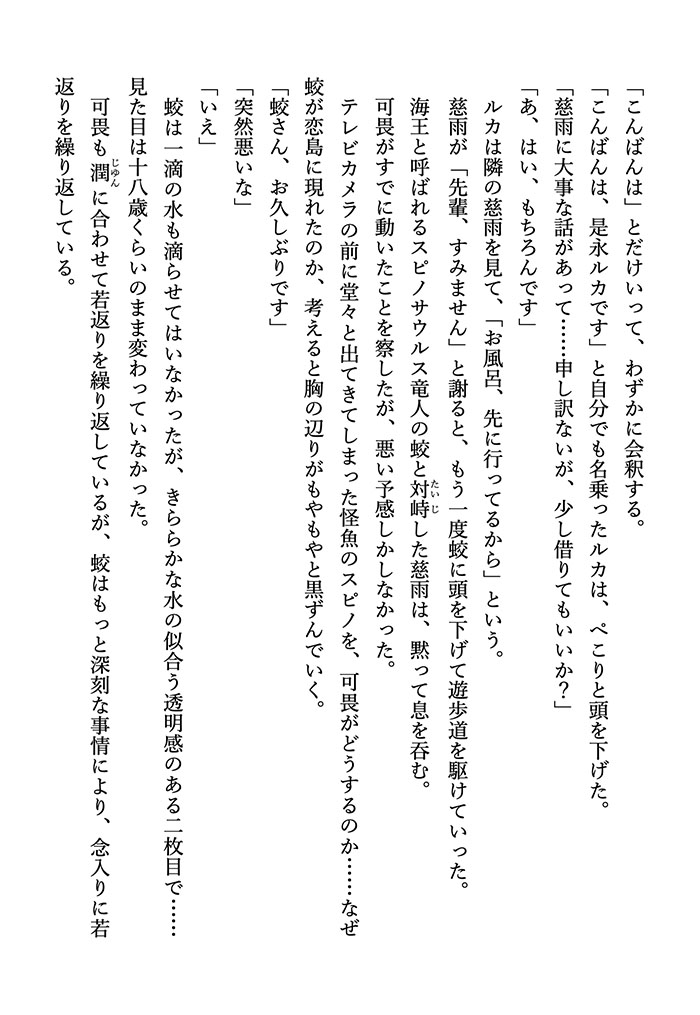 「こんばんは」とだけいって、わずかに会釈する。
「こんばんは、是永ルカです」と自分でも名乗ったルカは、ぺこりと頭を下げた。
「慈雨に大事な話があって……申し訳ないが、少し借りてもいいか？」
「あ、はい、もちろんです」
ルカは隣の慈雨を見て、「お風呂、先に行ってるから」という。
慈雨が「先輩、すみません」と謝ると、もう一度蛟に頭を下げて遊歩道を駆けていった。
海王と呼ばれるスピノサウルス竜人の蛟と対峙した慈雨は、黙って息を呑む。
たいじ
可畏がすでに動いたことを察したが、悪い予感しかしなかった。
テレビカメラの前に堂々と出てきてしまった怪魚のスピノを、可畏がどうするのか……なぜ
蛟が恋島に現れたのか、考えると胸の辺りがもやもやと黒ずんでいく。
「蛟さん、お久しぶりです」
「突然悪いな」
「いえ」
蛟は一滴の水も滴らせてはいなかったが、きららかな水の似合う透明感のある二枚目で……
見た目は十八歳くらいのまま変わっていなかった。
可畏も潤に合わせて若返りを繰り返しているが、蛟はもっと深刻な事情により、念入りに若
じゆん
返りを繰り返している。